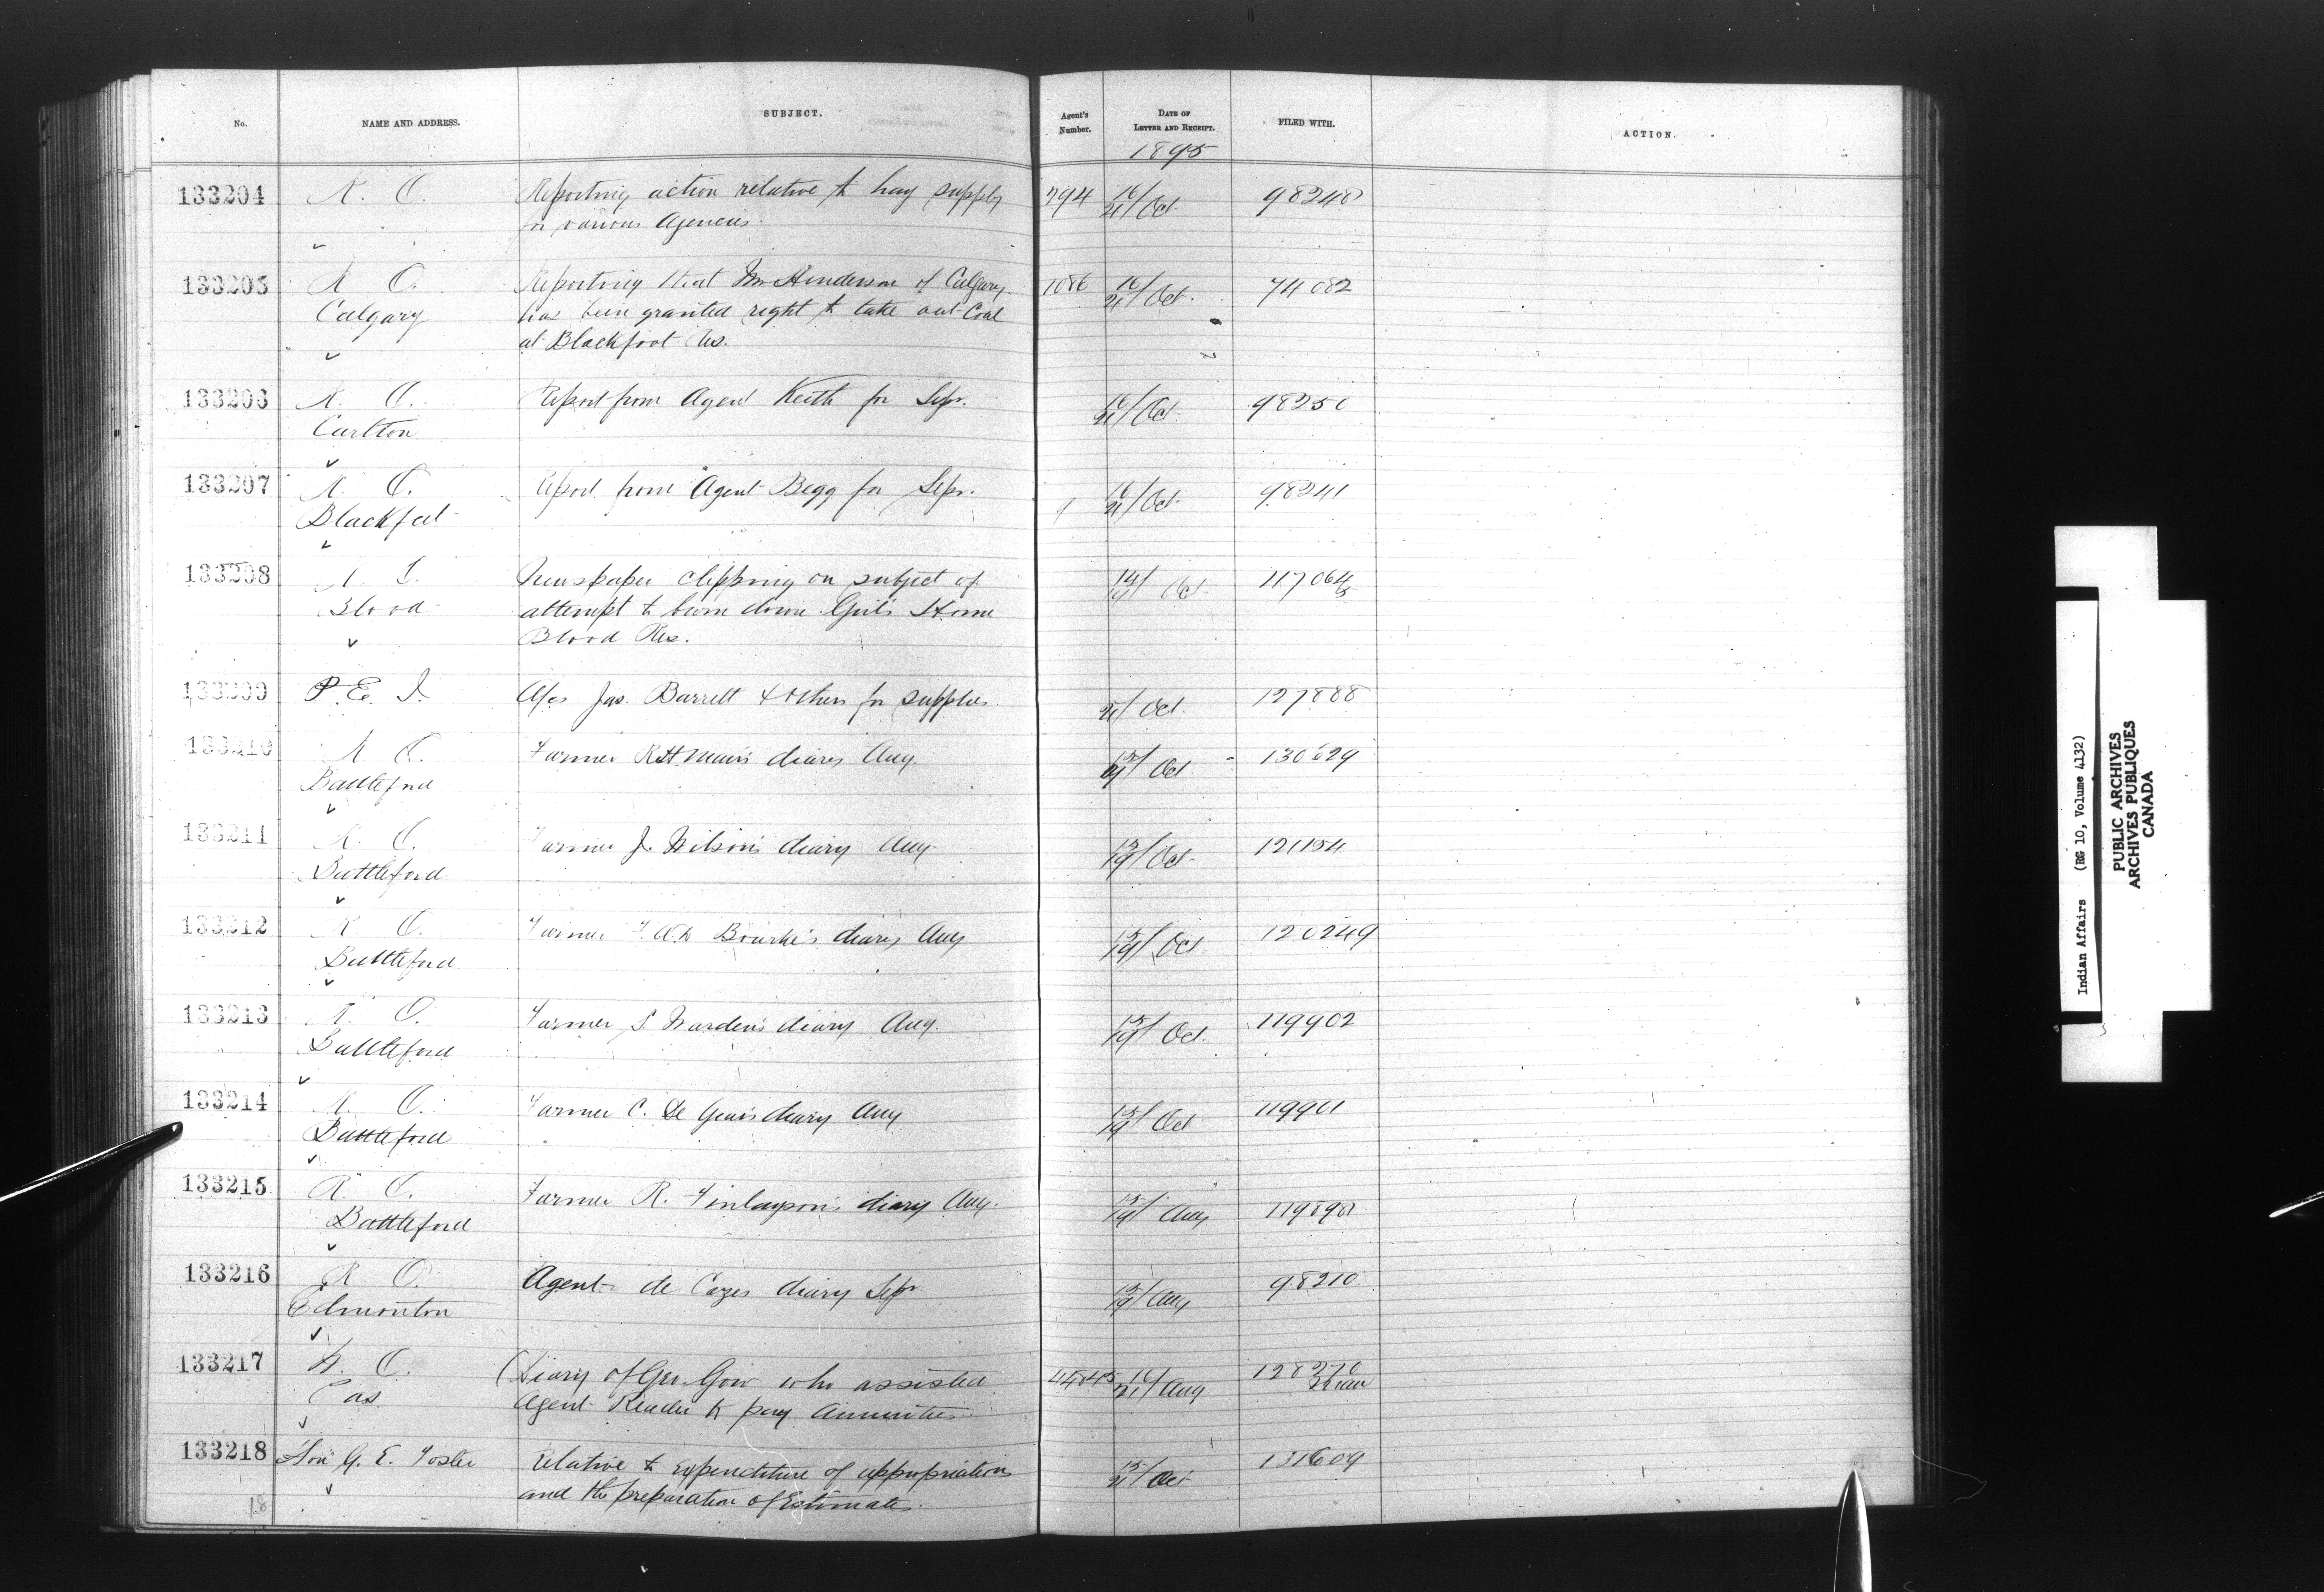 No. NAME AND ADDRESS. SUBJECT. Agent's Number. DATE OF LETTER AND RECEIPT. FILED WITH. ACTION.
1895
133204 R. O. Reporting action relative to hay supply 794 16/21 Oct. 98248
for various Agencies.
133205 R O. Reporting that Mr Henderson of Calgary 1086 16/21 Oct. 74082
Calgary has been granted right to take out Coal
at Blackfoot Res.
133206 R. O. Report from Agent Keith for Sepr. 16/21 Oct. 98250
Carlton
133207 R. O. Report from Agent Begg for Sepr. 16/21 Oct. 98241
Blackfeet
133208 Newspaper clipping on subject of Oct.
Blood attempt to burn down Girls Home
Blood Res.
133209 P. E. I. A/cs Jas. Barrett & others for supplies 21/ Oct. 127888
133210 R O. Farmer diary Aug. 15/19 Oct 130629
Battleford
133211 R. O. Farmer J. diary Aug. 15/19 Oct. 121154
Battleford
133212 R O. Farmer Bourke's diary Aug 15/19 Oct. 120249
Battleford
133213 R. O. Farmer S. Warden's diary Aug. 15/19 Oct. 119902
Battleford
133214 R. O. Farmer C. De Gear's diary Aug 15/19 Oct 119901
Battleford
133215 R. O. Farmer R. Finlayson's diary Aug. 15/19 Aug
Battleford
133216 R O. Agent de Cazes diary Sepr 15/19 Aug 98210
Edmonton
133217 O. Diary of Geo. Gow who assisted 16/21 Aug
Pas Agent Reader to pay Annuities.
133218 Hon G. E. Foster Relative to expenditure of appropriations 15/21 Oct 131609
and the preparation of Estimates.
18
Indian Affairs (RG 10, Volume 4132)
PUBLIC ARCHIVES
ARCHIVES PUBLIQUES
CANADA